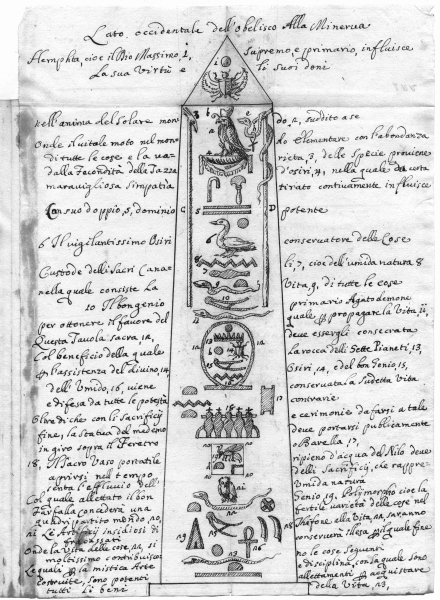 Lato occidentale dell'obelisco Alla Minerva
Hemphta, cioè il Dio Massimo, 1, supremo, e primario, influisce
La sua Virtù e li suoi doni
nell'anima del solare mondo, 2, suddito a se
Onde il vitale moto nel mondo Elementare con l'abondanza
di tutte le cose e la varietà, 3, delle specie proviene
dalla fecondità della Tazza d'Osiri, 4, nella quale da certa
maravigliosa simpatia tirato continuamente influisce
Con suo doppio, 5, dominio potente
6 Il vigilantissimo Osiri conservatore delle Cose
Custode delli Sacri Canali, 7, cioè dell'umida natura 8
nella quale consiste La Vita, 9, di tutte le cose
10 Il bongenio primario Agatodemone
per ottenere il favore del quale propagare la Vita 11,
Questa Tavola sacra 12, deve essergli consecrata
Col beneficio della quale la rocca delli Sette Pianeti, 13,
e l'assistenza del divino 14 Osiri, e del bon Genio, 15,
dell'Umido, 16, viene conservata la sudetta Vita
e difesa da tutte le potestà contrarie
Oltre di che con li Sacrificij e cerimonie da farsi a tale
fine, la Statua del medemo deve portarsi publicamente
in giro sopra il Feretro o Barella 17,
18, Il Sacro Vaso portatile ripieno d'acqua del Nilo deve
aprirsi nel tempo delli Sacrificij, che
l'effluvio dell' Umida natura
Col quale allettato il bon Genio, 19, Polymorpho cioè la
farfalla concederà una fertile varietà delle cose nel
quadripartito mondo, 20,
ai Le Artificij insidiosi di Thifone alla Vita
conserverà illesa, quale fine
Onde la Vita delle cose, 22, si no le cose seguenti
moltissimo contribuiscono disciplina, con la quale sono
Le quali, la mistica Arte allettamenti acquistare
Costruite, Sono potenti della Vita, 23,
tutti li beni
C
D